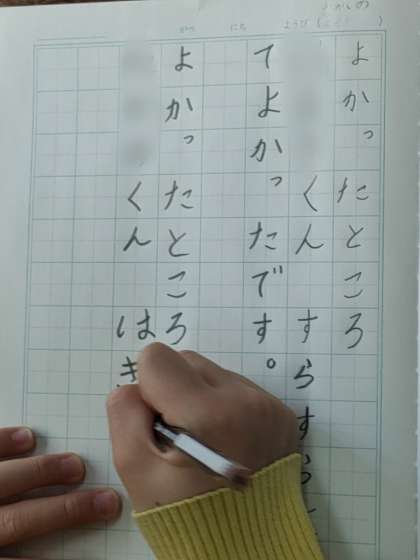 がつ にち ようび
よかったところ
くん すらすら
てよかったです。
よかったところ
くん はき